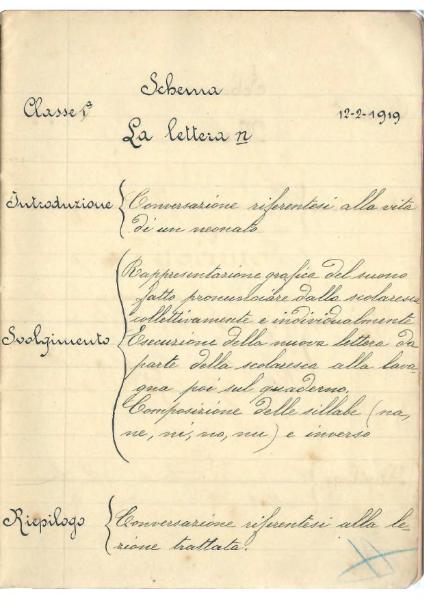 Schema
Classe 1ª
12-2-1919
La lettera n
Introduzione
Conversazione riferentesi alla vita
di un neonato
Svolgimento
Rappresentazione grafica del suono
fatto pronunciare dalla scolaresca
collettivamente e individualmente
Escuzione della nuova lettera da
parte della scolaresca alla lava-
gna poi sul quaderno,
Composizione delle sillabe (na,
ne, ni, no, nu) e inverso
Riepilogo
Conversazione riferentesi alla le-
zione trattata.